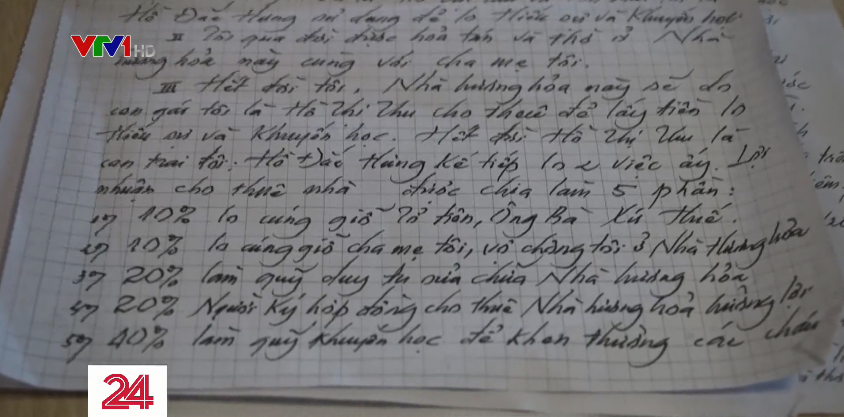 VTV1 HD
Hồ Đắc Hùng sử dụng để lo Hiếu sự và Khuyến học
II Tôi qua đời được hỏa tán và thờ ở Nhà
hương hỏa này cùng với cha mẹ tôi.
III Hết đời tôi, Nhà hương hỏa này sẽ do
con gái tôi là Hồ Thị Thu cho thuê để lấy tiền lo
Hiếu sự và Khuyến học. Hết đời Hồ Thị Thu là
con trai tôi: Hồ Đắc Hùng kế tiếp lo 2 việc ấy. Lợi
nhuận cho thuê nhà được chia làm 5 phần:
1) 10% lo cúng giỗ Tổ tiên, Ông Bà Xứ Huế.
2) 10% lo cúng giỗ cha mẹ tôi, vợ chồng tôi ở Nhà Hương hỏa
3) 20% làm quỹ duy tu sửa chữa Nhà hương hỏa
4) 20% Người ký hợp đồng cho thuê Nhà hương hoả hưởng lợi
5) 40% làm quỹ khuyến học để khen thưởng các cháu
24